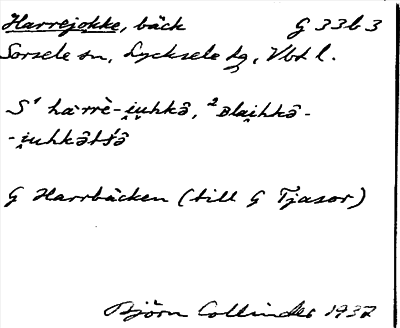 Harrejokke, bäck G 33b3
Sorsele sn, Lycksele lg, Vbtl.
S ¹ hàrrè-i̯uhkâ, ² ʙlai̯hkâ-
-i̯uhkâttsâ
G Harrbäcken (till G Tjasor)
Björn Collinder 1937